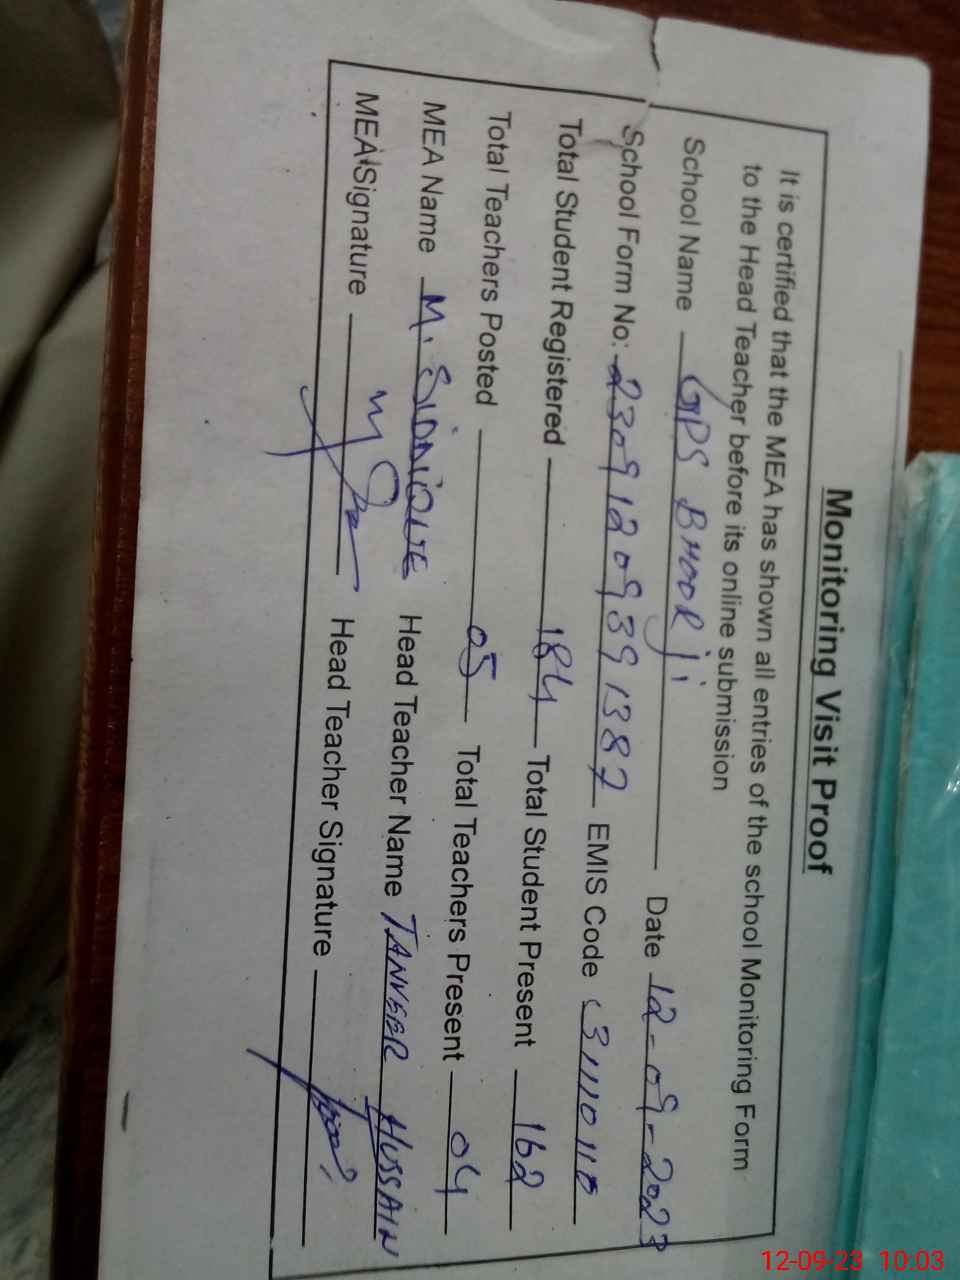 Monitoring Visit Proof
It is certified that the MEA has shown all entries of the school Monitoring Form
to the Head Teacher before its online submission
School Name GPS BHOORji Date 12-09-2023
School Form No: 23091209391387 EMIS Code
Total Student Registered 184 Total Student Present 162
Total Teachers Posted 05 Total Teachers Present 04
MEA Name M. SIDDIQUE Head Teacher Name TANVEER HUSSAIN
MEA Signature Head Teacher Signature
12-09-23 10:03